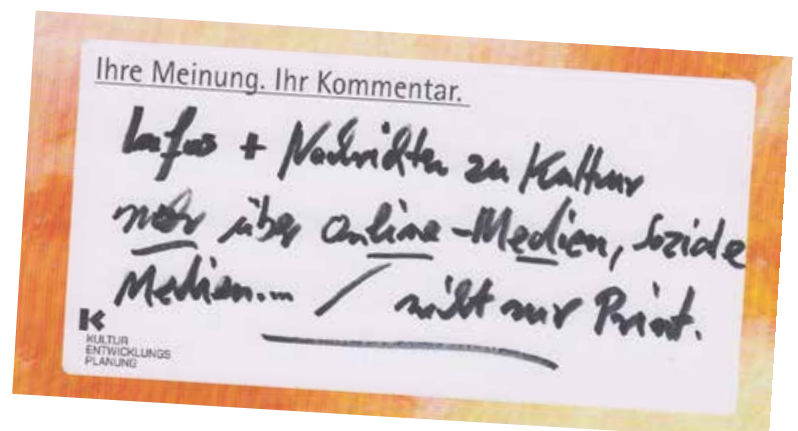 Ihre Meinung. Ihr Kommentar.
Infos + Nachrichten zu Kultur
mehr über online-Medien, Soziale
Medien... / nicht nur Print.
KULTUR
ENTWICKLUNGS
PLANUNG